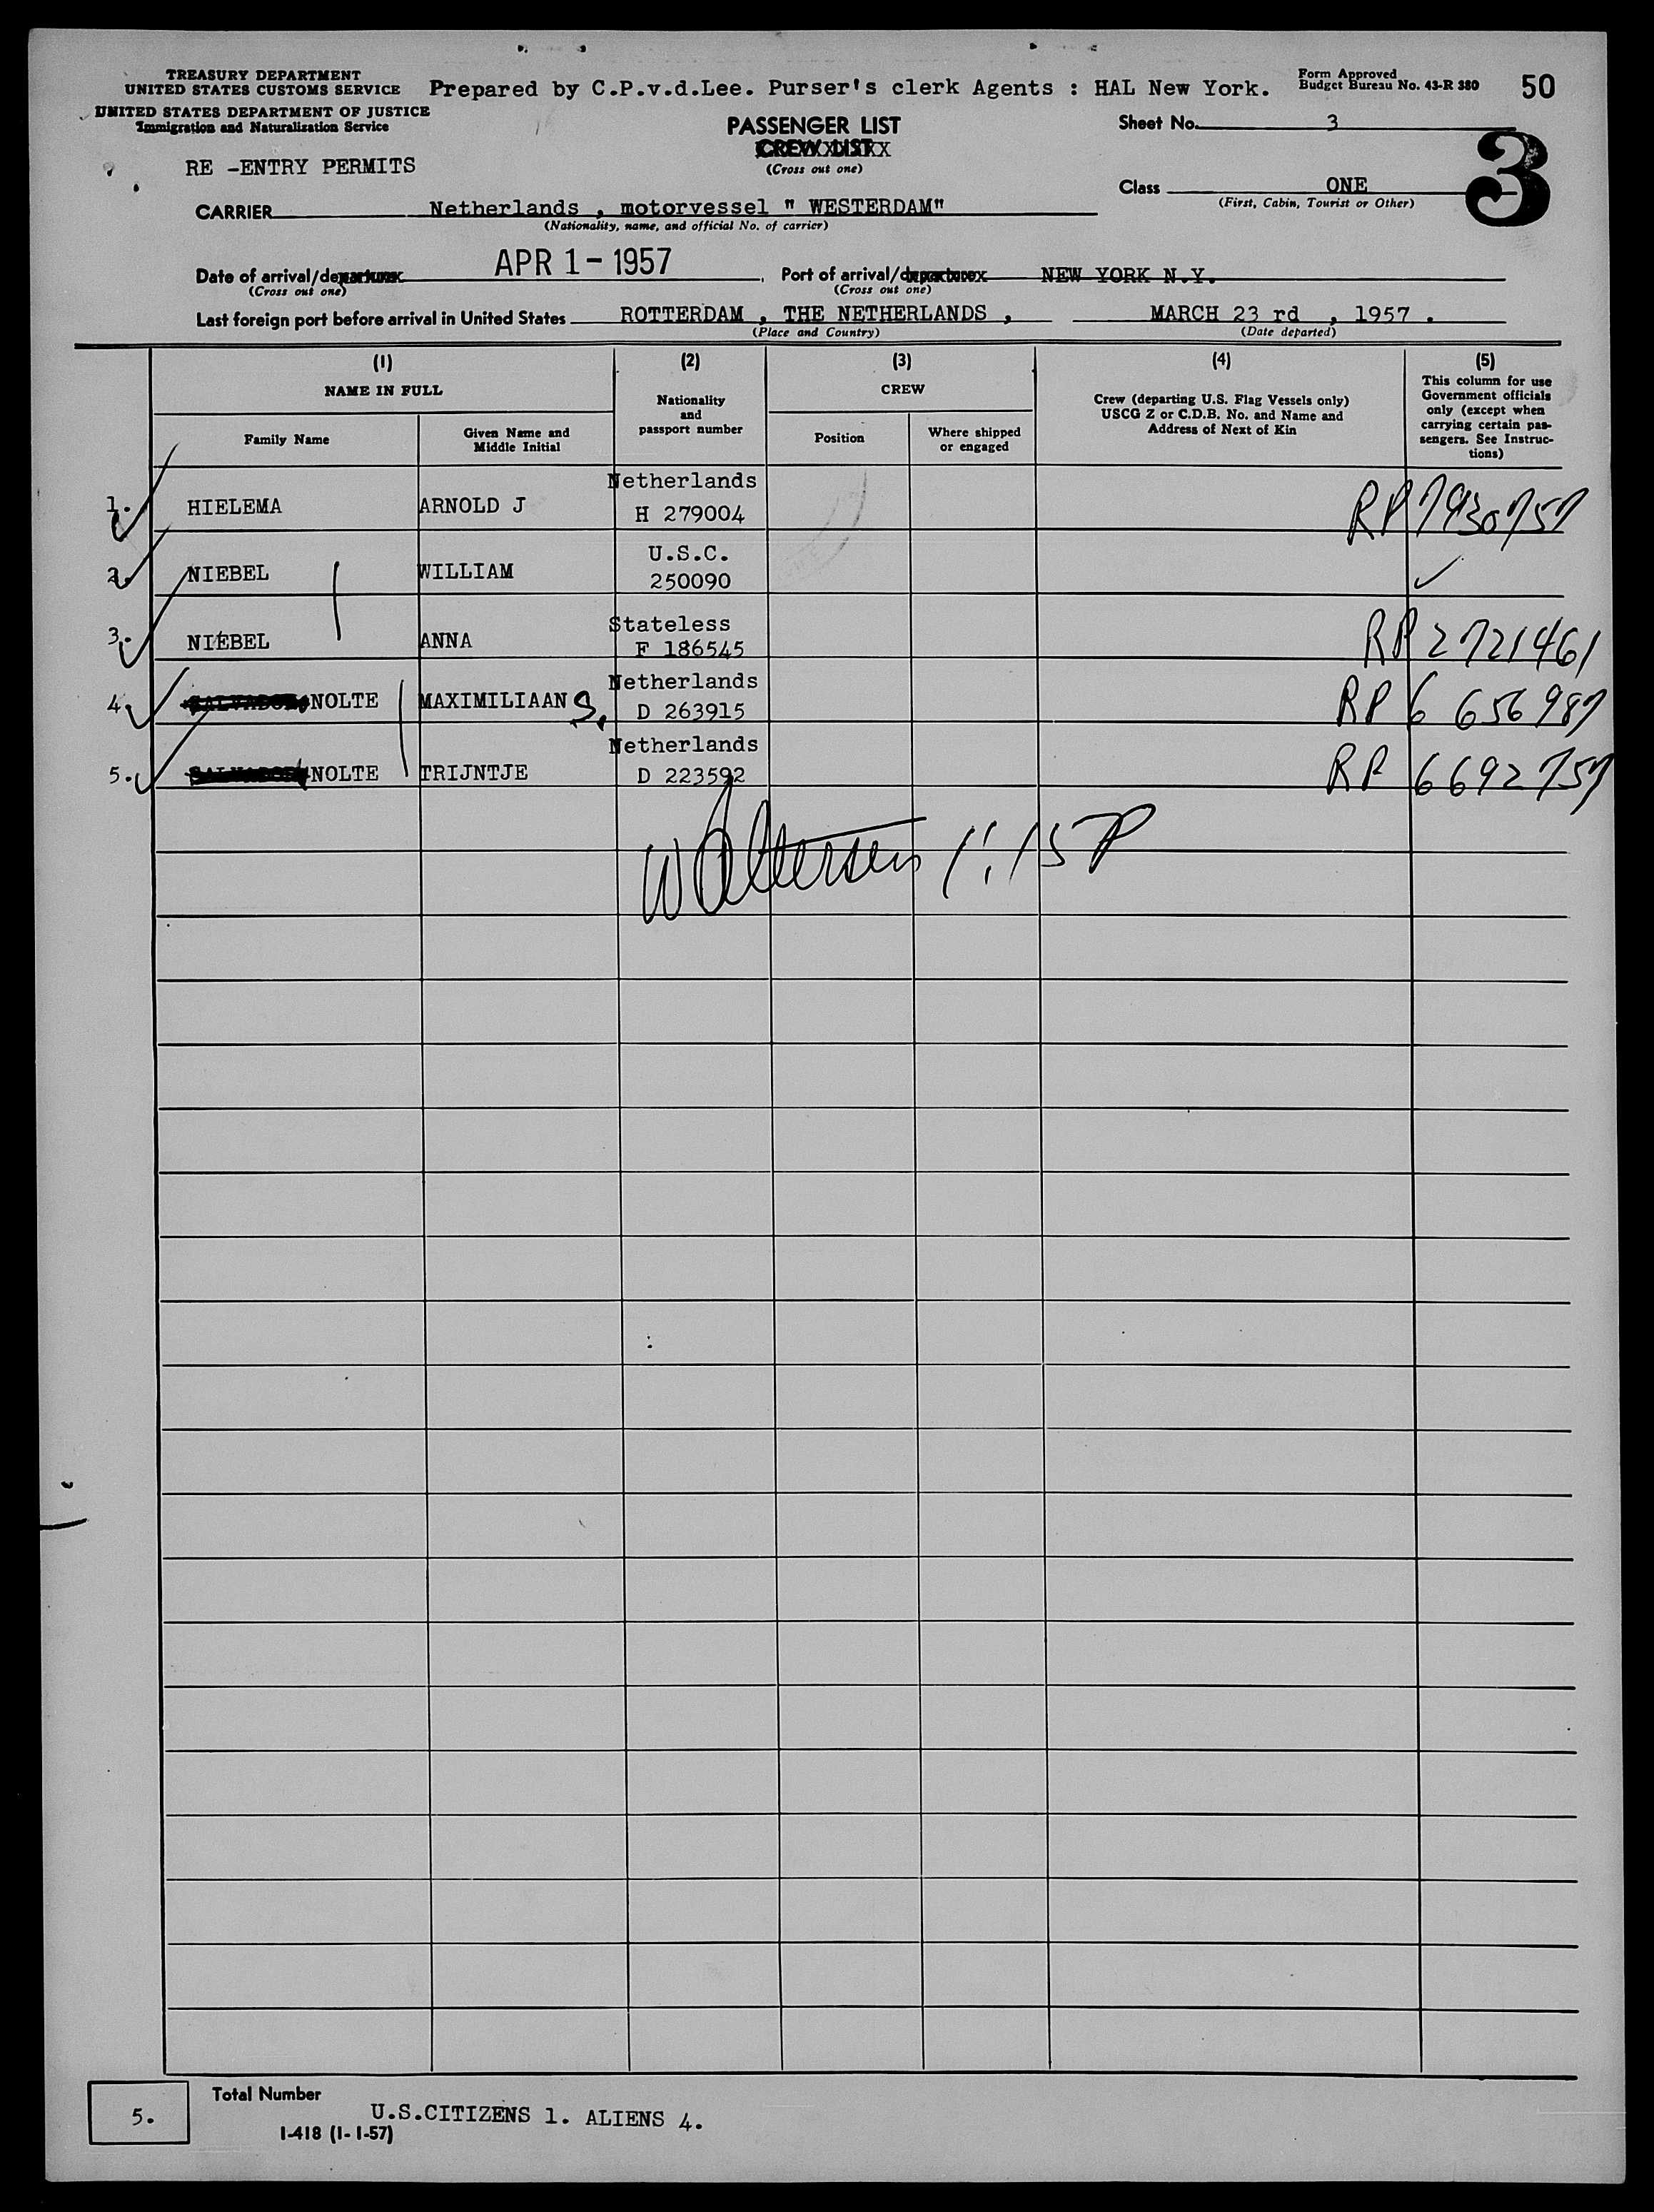 TREASURY DEPARTMENT
UNITED STATES CUSTOMS SERVICE
UNITED STATES DEPARTMENT OF JUSTICE
Immigration and Naturalization Service
Prepared by C.P.v.d.Lee. Purser's clerk Agents : HAL New York.
Form Approved
Budget Bureau No. 43-R 380
50
PASSENGER LIST
CREW LIST
(Cross out one)
Sheet No. 3
3
RE -ENTRY PERMITS
Class ONE
(First, Cabin, Tourist or Other)
CARRIER Netherlands , motorvessel " WESTERDAM"
(Nationality, name, and official No. of carrier)
Date of arrival/departure APR 1 - 1957 , Port of arrival/departure NEW YORK N.Y.
(Cross out one) (Cross out one)
Last foreign port before arrival in United States ROTTERDAM , THE NETHERLANDS , MARCH 23 rd , 1957 .
(Place and Country) (Date departed)
(1) (2) (3) (4) (5)
NAME IN FULL
Family Name
Given Name and
Middle Initial
Nationality
and
passport number
CREW
Position
Where shipped
or engaged
Crew (departing U.S. Flag Vessels only)
USCG Z or C.D.B. No. and Name and
Address of Next of Kin
This column for use
Government officials
only (except when
carrying certain pas-
sengers. See Instruc-
tions)
1. HIELEMA ARNOLD J Netherlands H 279004 RP 7930757
2. NIEBEL WILLIAM U.S.C. 250090 ✓
3. NIEBEL ANNA Stateless F 186545 RP 2721461
4. SALVADOR NOLTE MAXIMILIAAN S. Netherlands D 263915 RP 6 656987
5. SALVADOR NOLTE TRIJNTJE Netherlands D 223592 RP 6692757
1:15 P
5.
Total Number
U.S.CITIZENS 1. ALIENS 4.
I-418 (1-1-57)